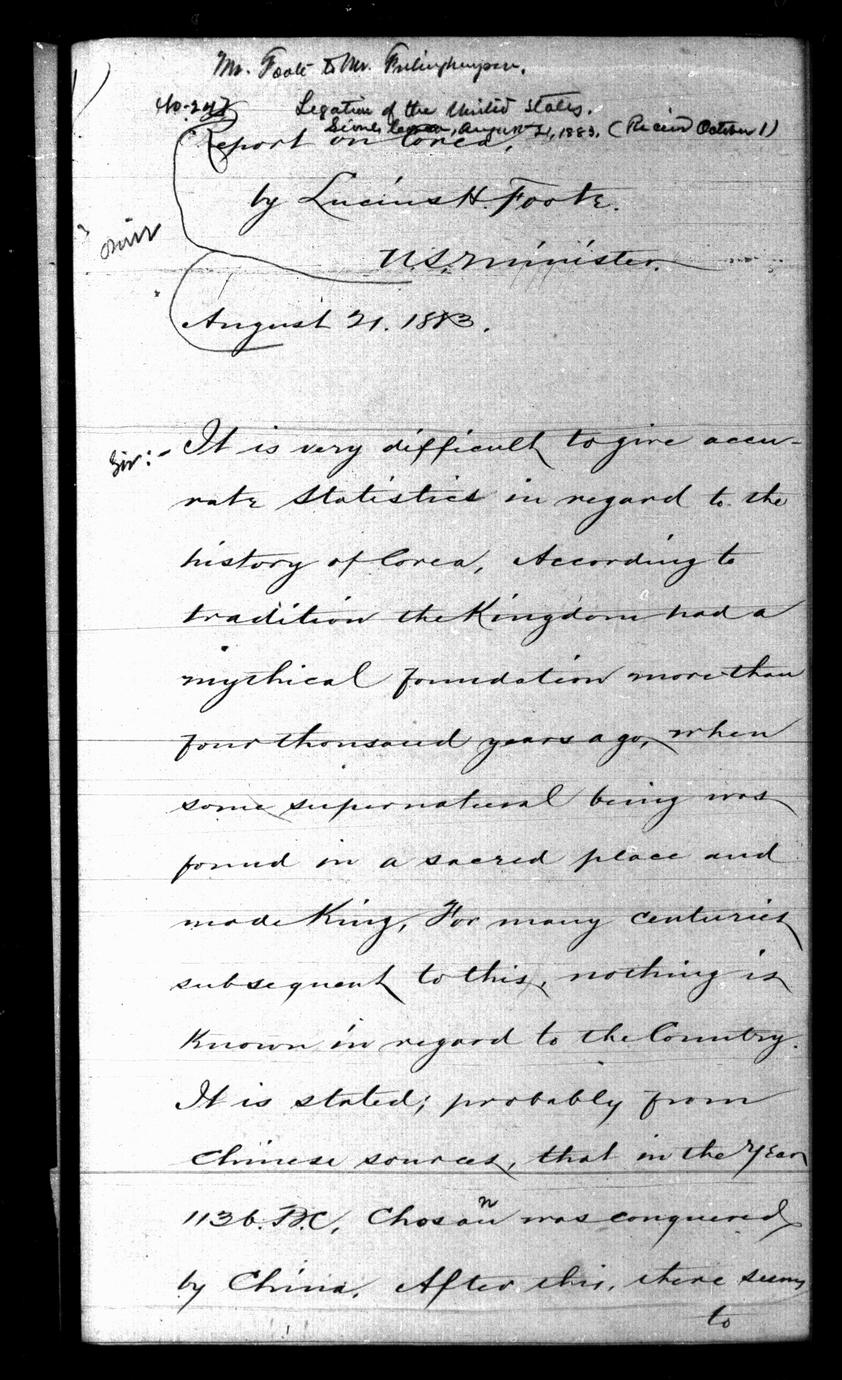 Mr. Foote to Mr. Frelinghuysen.
Legation of the United States.
Seoul, Corea, August 21, 1883. (Received October 1)
Report on Corea,
by Lucius H. Foote.
U.S. Minister.
omit
August 21. 1883.
Sir:- It is very difficult to give accu-
rate statistics in regard to the
history of Corea, According to
tradition the Kingdom had a
mythical foundation more than
four thousand years ago, when
some supernatural being was
found in a sacred place and
made King, For many centuries
subsequent to this, nothing is
known in regard to the Country.
It is stated; probably from
Chinese sources, that in the Year
1136. B.C, Chosan was conquered
by China. After this, there seems
to